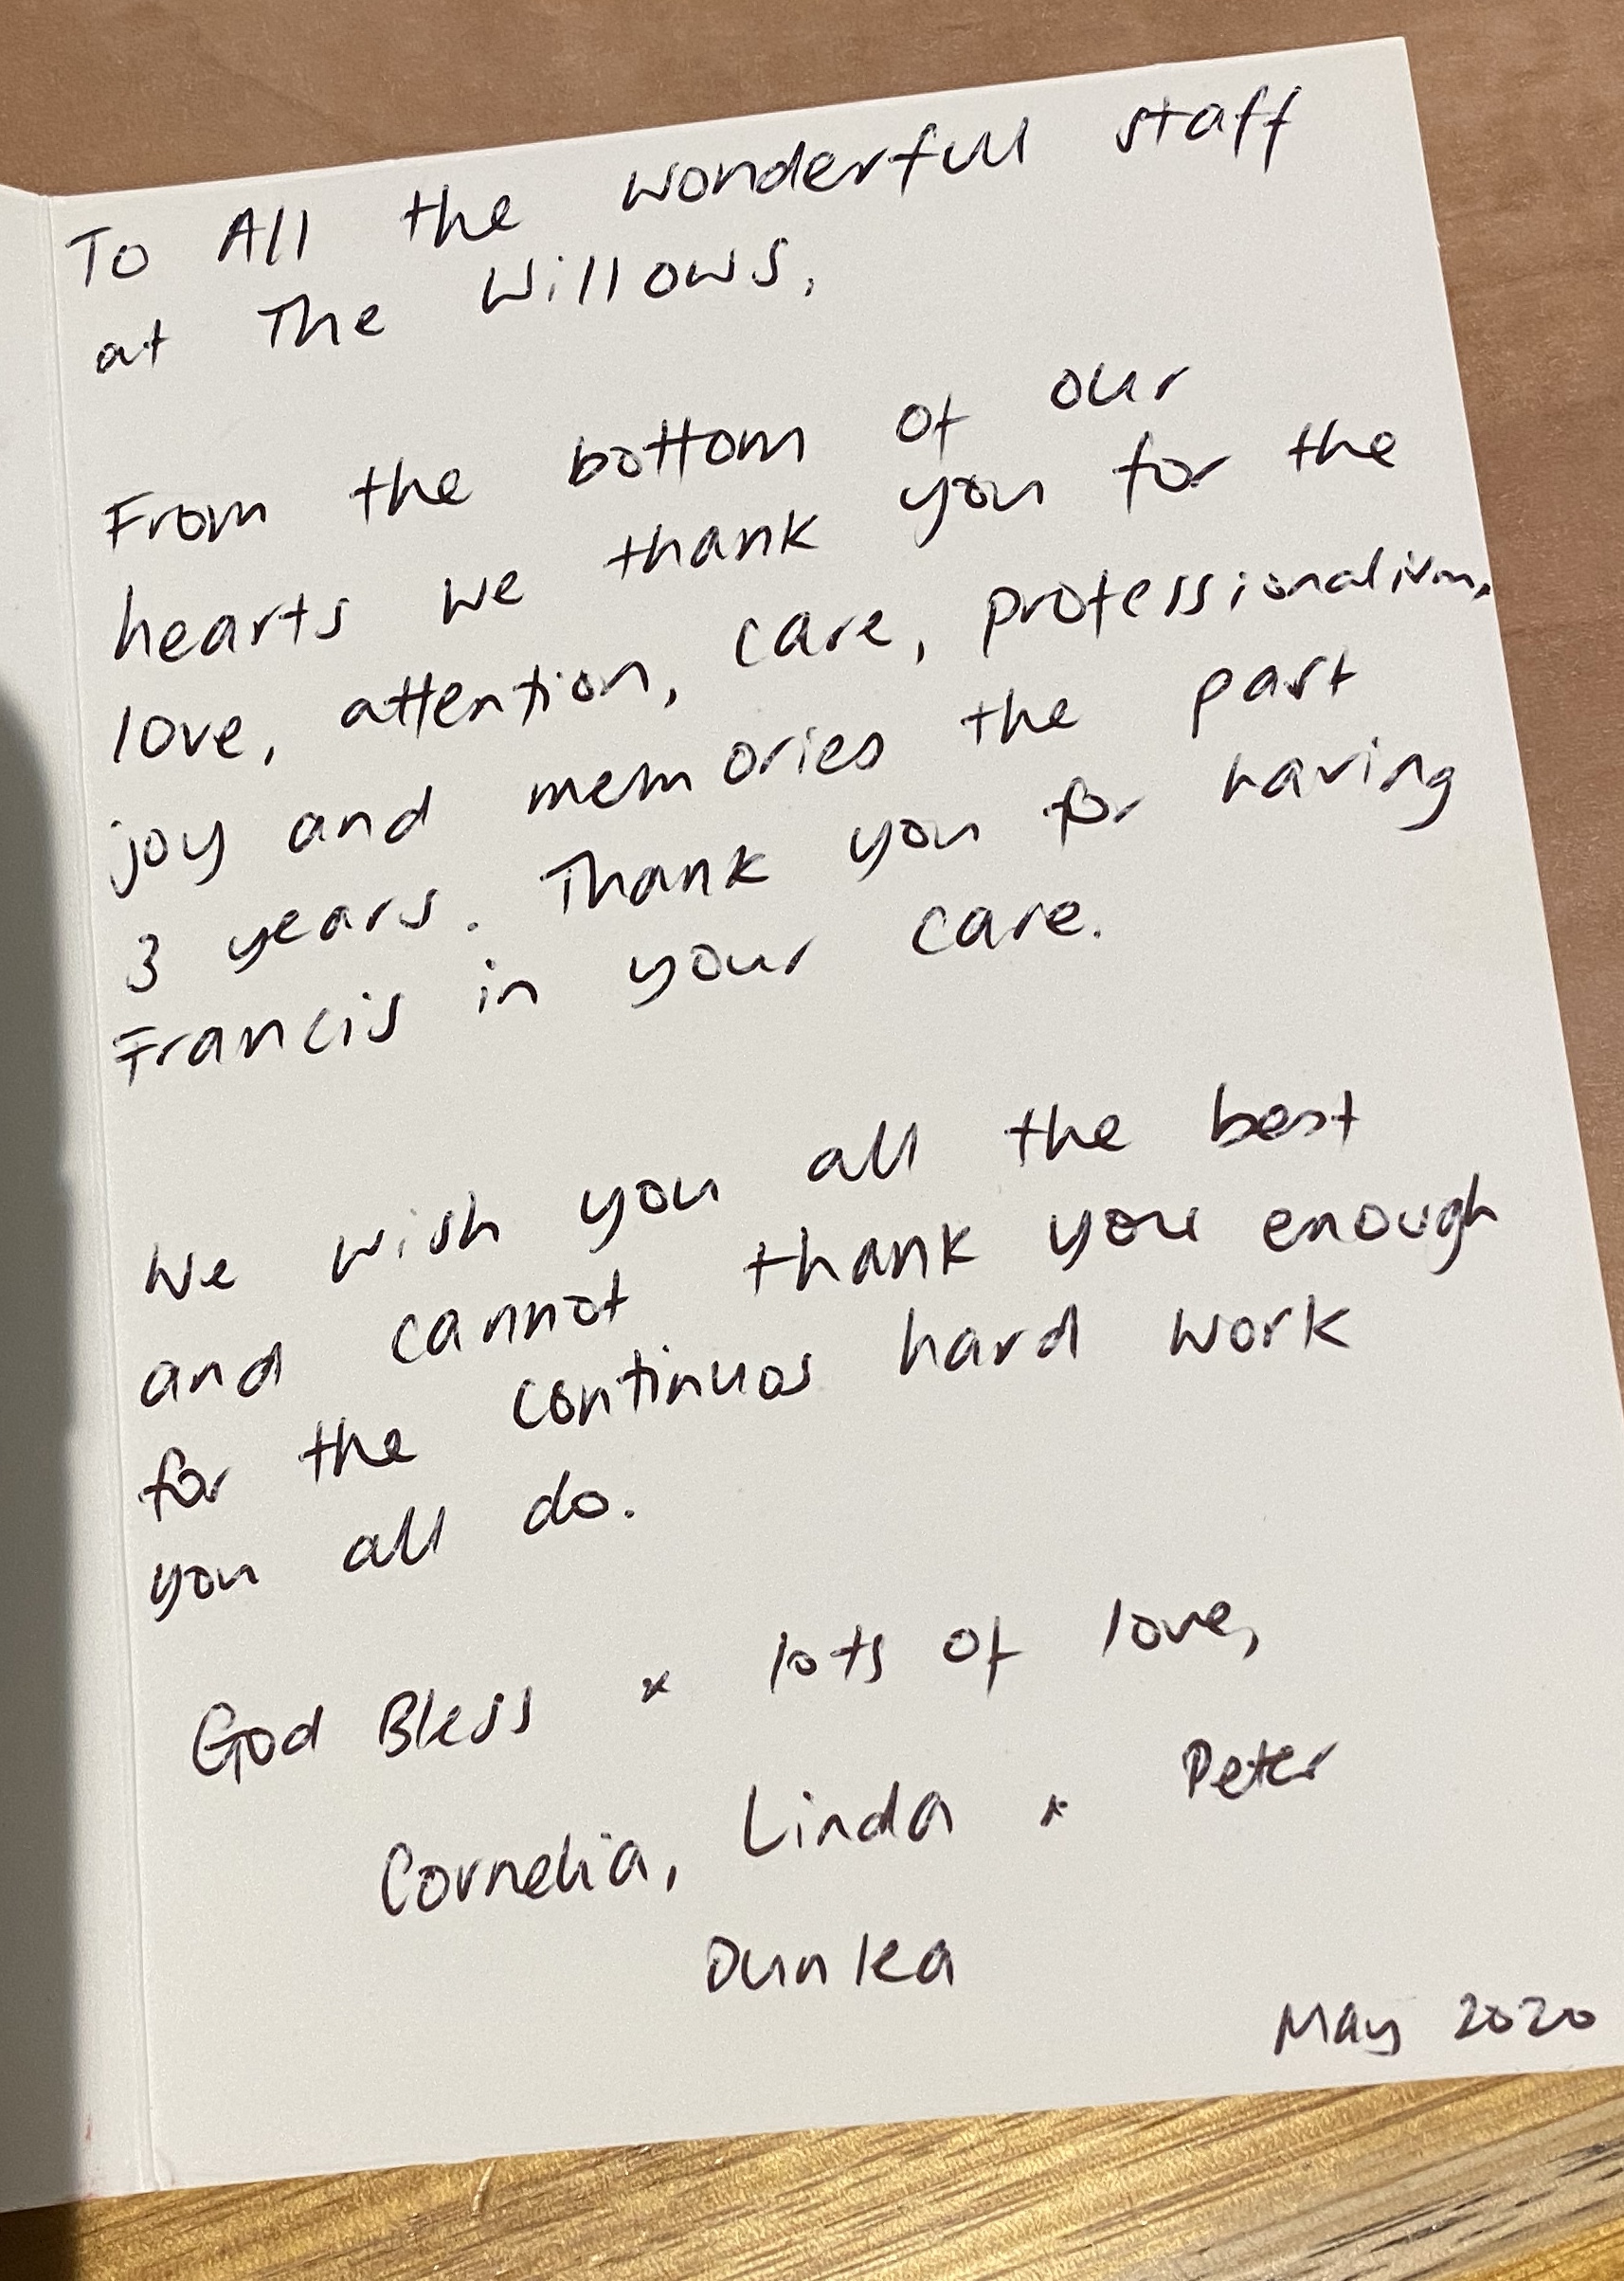 To All the wonderfull staff
at The Willows,
From the bottom of our
hearts we thank you for the
love, attention, care, professionalism,
joy and memories the past
3 years. Thank you for having
Francis in your care.
We wish you all the best
and cannot thank you enough
for the continuos hard work
you all do.
God Bless + lots of love,
Cornelia, Linda + Peter
Dunkea
May 2020